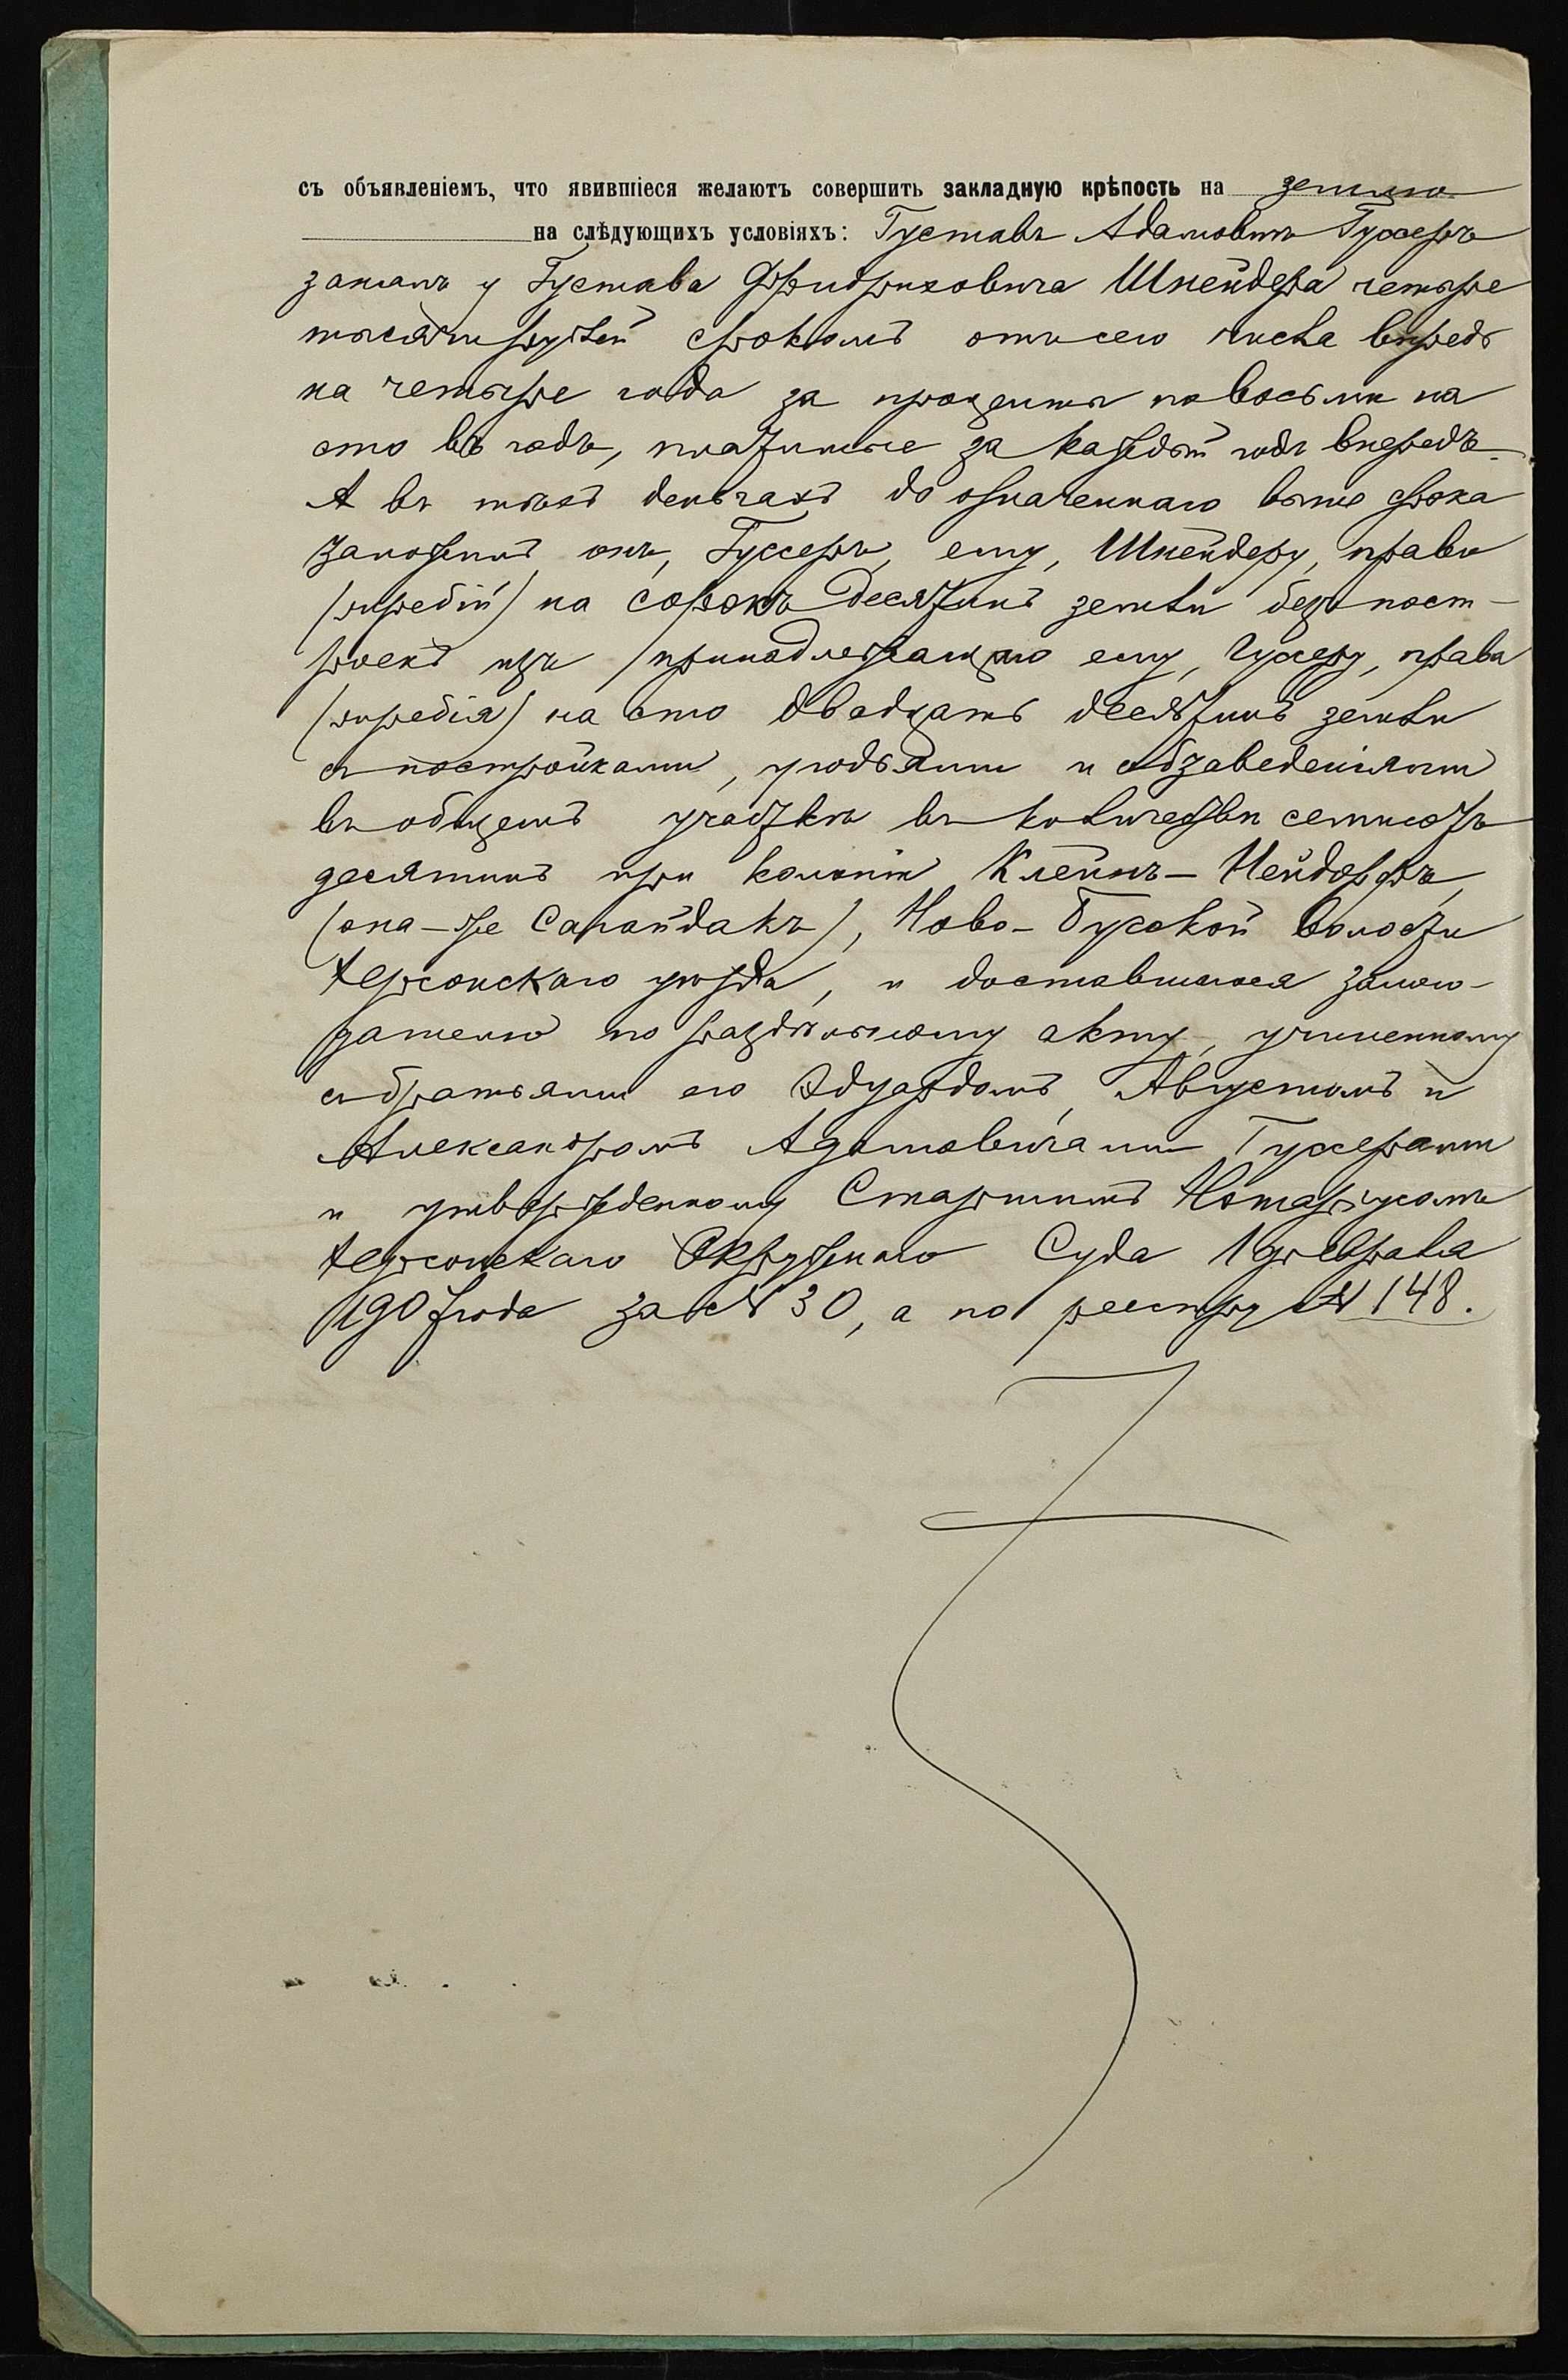 съ объявленіемъ, что явившіеся желаютъ совершить закладную крѣпость на землю
на слѣдующихъ условіяхъ: Густавъ Адамовичъ Гуссеръ
занялъ у Густава Фридриховича Шнейдера четыре
тысячи рублей срокомъ отъ сего числа впредь
на четыре года за проценты по восьми на
сто въ годъ, платимые за каждый годъ впередъ.
А въ тѣхъ деньгахъ до означеннаго выше срока
заложилъ онъ, Гуссеръ, ему, Шнейдеру, право
(жребій) на сорокъ десятинъ земли безъ пост-
роекъ изъ принадлежащаго ему, Гуссеру, права
(жребія) на сто двадцать десятинъ земли
съ постройками, угодьями и обзаведеніями
въ общемъ участкѣ въ количествѣ семисотъ
десятинъ при колоніи Клейнъ-Нейдорфъ,
(она-же Сарайдакъ), Ново-Бугской волости
Херсонскаго уѣзда, и доставшагося залого-
дателю по раздѣльному акту, учиненному
съ братьями его Эдуардомъ, Августомъ и
Александромъ Адамовичами Гуссерами
и утвержденному Старшимъ Нотаріусомъ
Херсонскаго Окружнаго Суда 1 февраля
1907 года за № 30, а по реестру № 148.